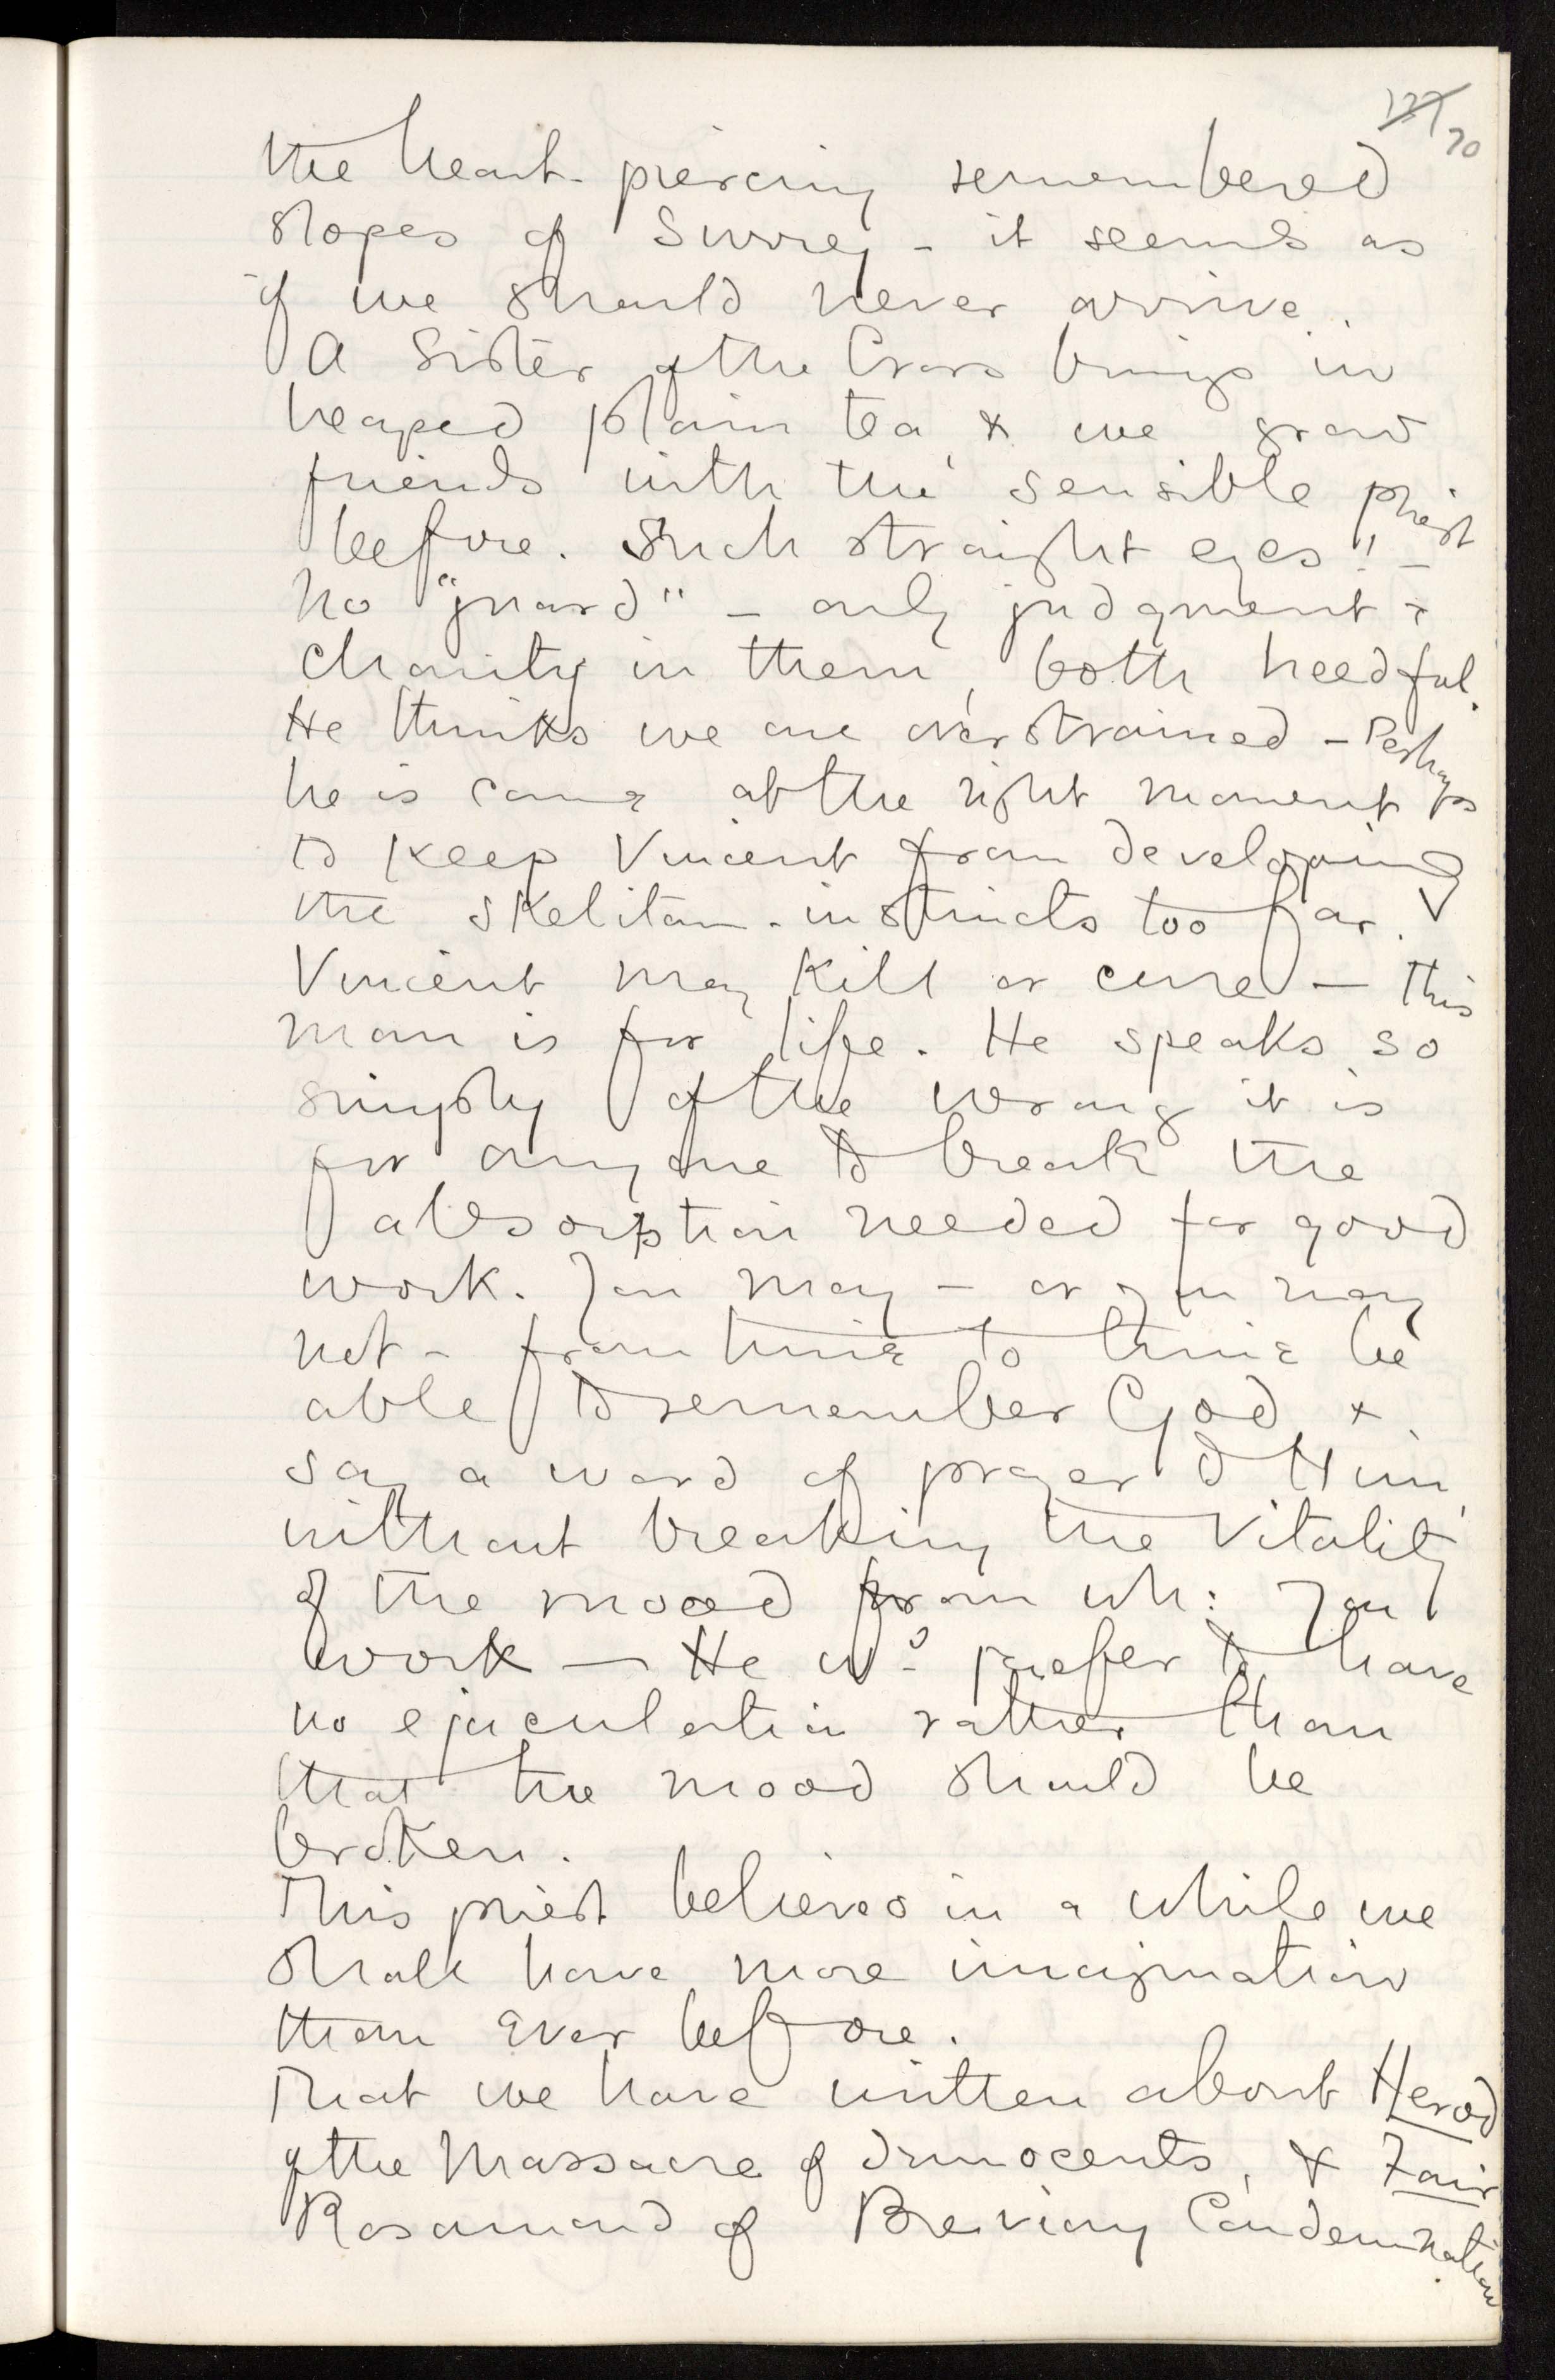 127 70
the heart-piercing remembered
slopes of Surrey - it seems as
if we should never arrive.
A Sister of the Cross brings in
heaped plain tea, & we grow
friends with the sensible priest
before. Such straight eyes! -
no "guard" - only judgment &
charity in them, both needful.
He thinks we are overstrained - Perhaps
he is come at the right moment
to keep Vincent from developing
the skeliton-instincts too far.
Vincent may kill or cure - this
man is for life. He speaks so
simply of the wrong it is
for anyone to break the
absorption needed for good
work. You may - or you may
not - from time to time be
able to remember God &
say a word of prayer to Him,
without breaking the vitality
of the mood from wh: you
work - He wd prefer to have
no ejaculation rather than
that the mood should be
broken.
This priest believes in a while we
shall have more imagination
than ever before.
That we have written about Herod
of the Massacre of Innocents, & Fair
Rosamund of Breviary Condemnation.